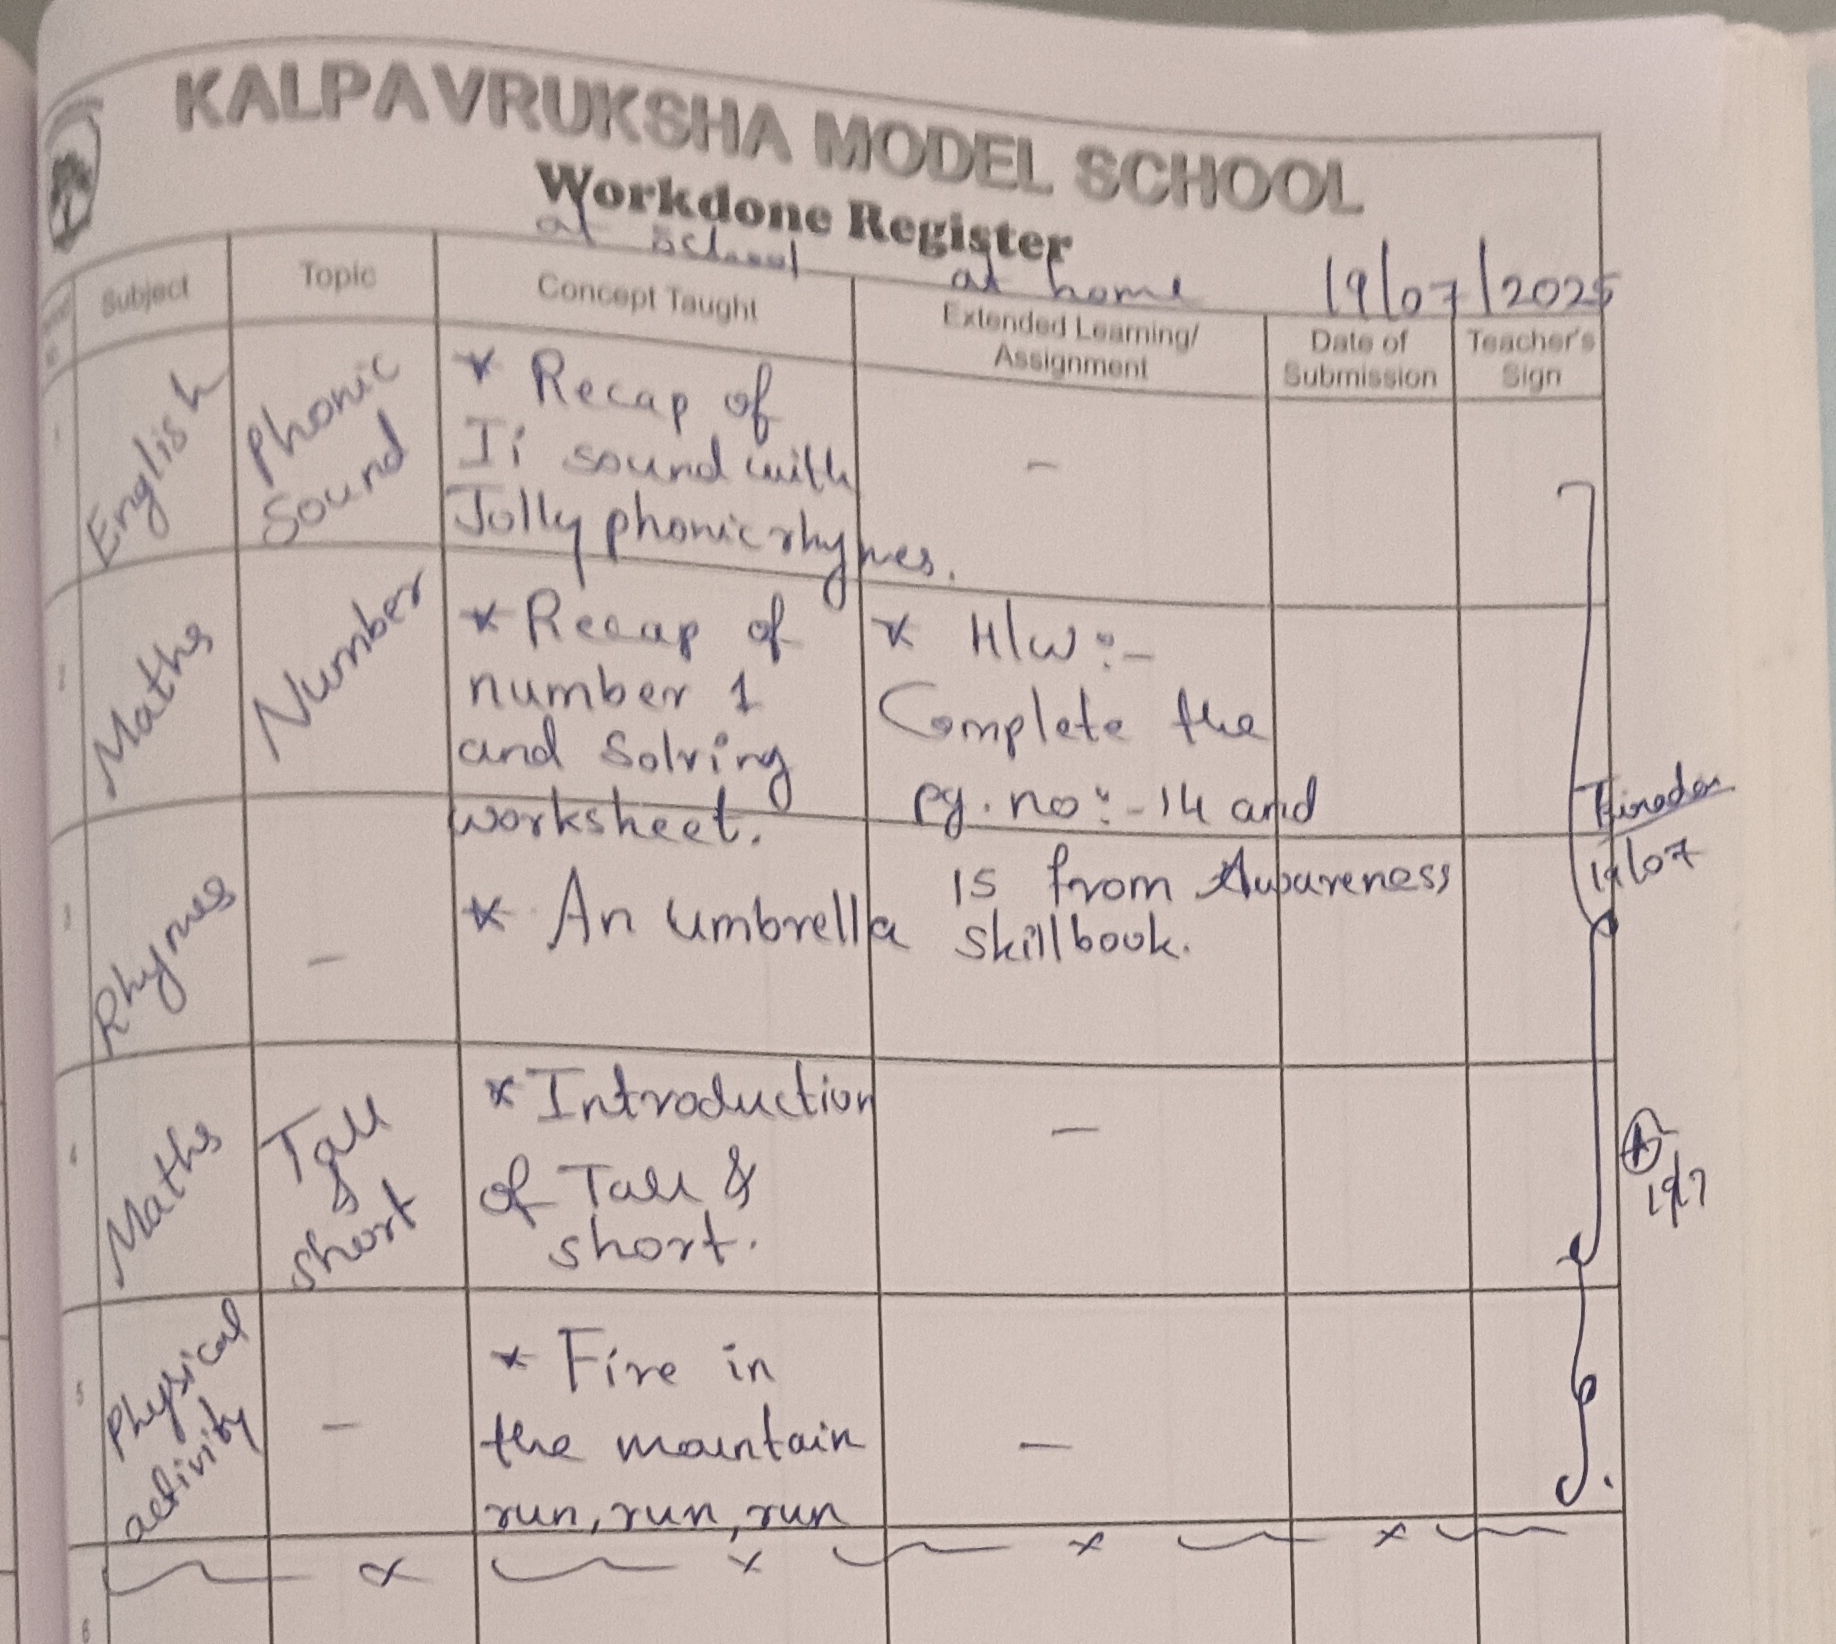 KALPAVRUKSHA MODEL SCHOOL
Workdone Register
at School
at home
19/07/2025
Subject
Topic
Concept Taught
Extended Learning/
Assignment
Date of
Submission
Teacher's
Sign
1
English
Phonic
Sound
* Recap of
Ii sound with
Jolly phonic rhymes.
-
2
Maths
Number
* Recap of
number 1
and Solving
worksheet.
* H/W :-
Complete the
pg. no :- 14 and
15 from Awareness
skillbook.
3
Rhymes
-
* An umbrella
19/07
4
Maths
Tall
&
short
* Introduction
of Tall &
short.
-
19/7
5
Physical
activity
-
* Fire in
the mountain
run, run, run
-
6